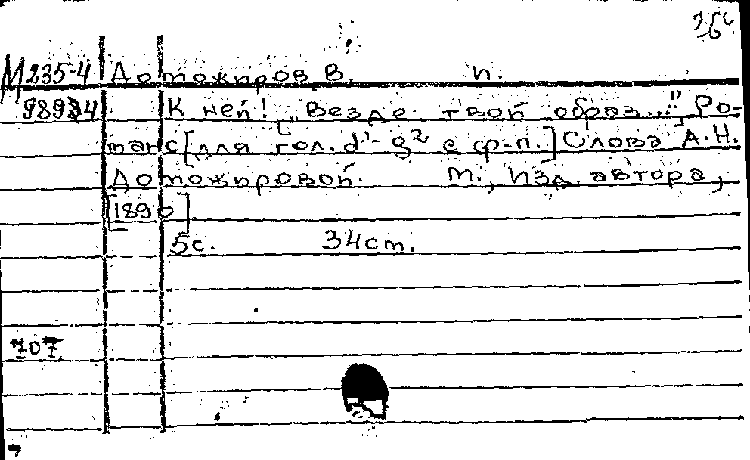 М235-4 Доможиров В. п.
98934 К ней! ["Везде твой образ..." Ро-
манс [для гол. d¹-g² с ф-п.] Слова А.Н.
Доможировой. М., Изд. автора,
[1890]
5с. 34cm.
707